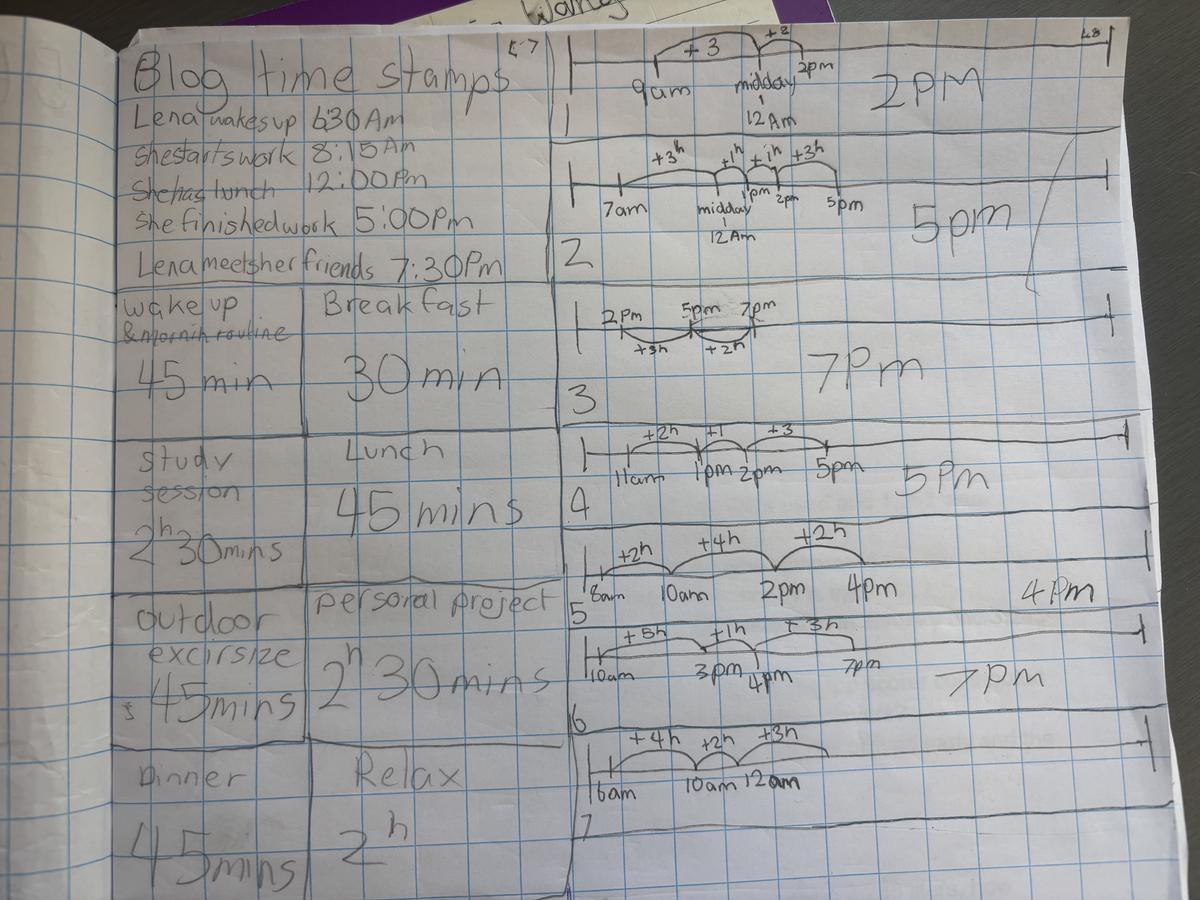 Wand
Blog time stamps
Lena wakes up 6:30 Am
She starts work 8:15 Am
She has lunch 12:00 Pm
She finished work 5:00 Pm
Lena meets her friends 7:30 Pm
wake up
& mornin routine
45 min
Breakfast
30 min
study
session
2h 30 mins
Lunch
45 mins
outdoor
excirsize
45 mins
personal project
2h 30 mins
Dinner
45 mins
Relax
2h
+3 +2
9am midday 2pm
12 Am
2PM
1
+3h +1h +1h +3h
7am midday 1pm 2pm 5pm
12 Am
5pm
2
2Pm 5pm 7pm
+3h +2h
7Pm
3
+2h +1 +3
11am 1pm 2pm 5pm
5Pm
4
+2h +4h +2h
8am 10am 2pm 4pm
4Pm
5
+5h +1h +3h
10am 3pm 4pm 7pm
7pm
6
+4h +2h +3h
6am 10am 12am
7